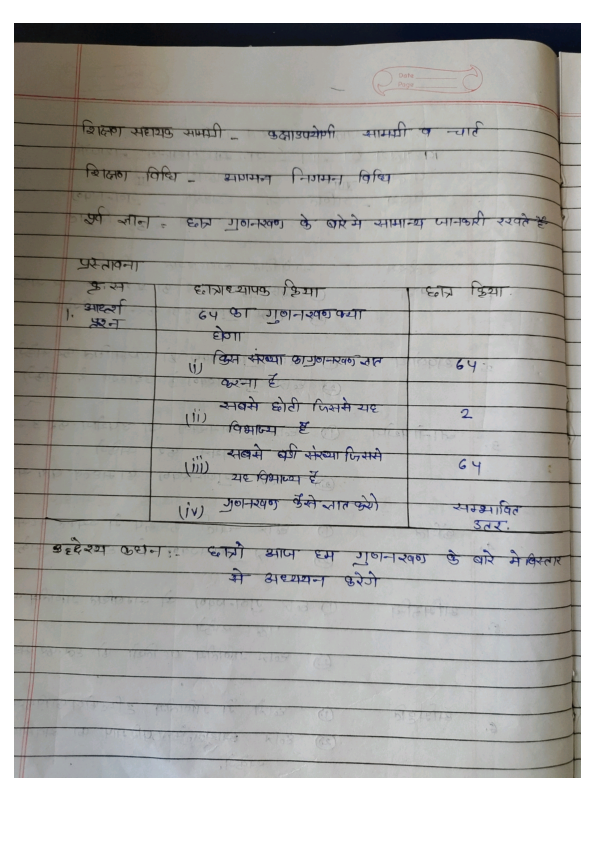 Date
Page
शिक्षण सहायक सामग्री - कक्षाउपयोगी सामग्री व चार्ट
शिक्षण विधि - आगमन निगमन विधि
पूर्व ज्ञान - छात्र गुणनखण्ड के बारे मे सामान्य जानकारी रखते है
प्रस्तावना
क्र.स छात्राध्यापक क्रिया छात्र क्रिया
1. आदर्श प्रश्न 64 का गुणनखण्ड क्या
होगा
(i) किस संख्या का गुणनखण्ड ज्ञात 64
करना है
(ii) सबसे छोटी जिससे यह 2
विभाज्य है
(iii) सबसे बडी संख्या जिससे 64
यह विभाज्य है
(iv) गुणनखण्ड कैसे ज्ञात करेगे सम्भावित
उतर.
उद्देश्य कथन :- छात्रो आज हम गुणनखण्ड के बारे मे विस्तार
से अध्ययन करेगे